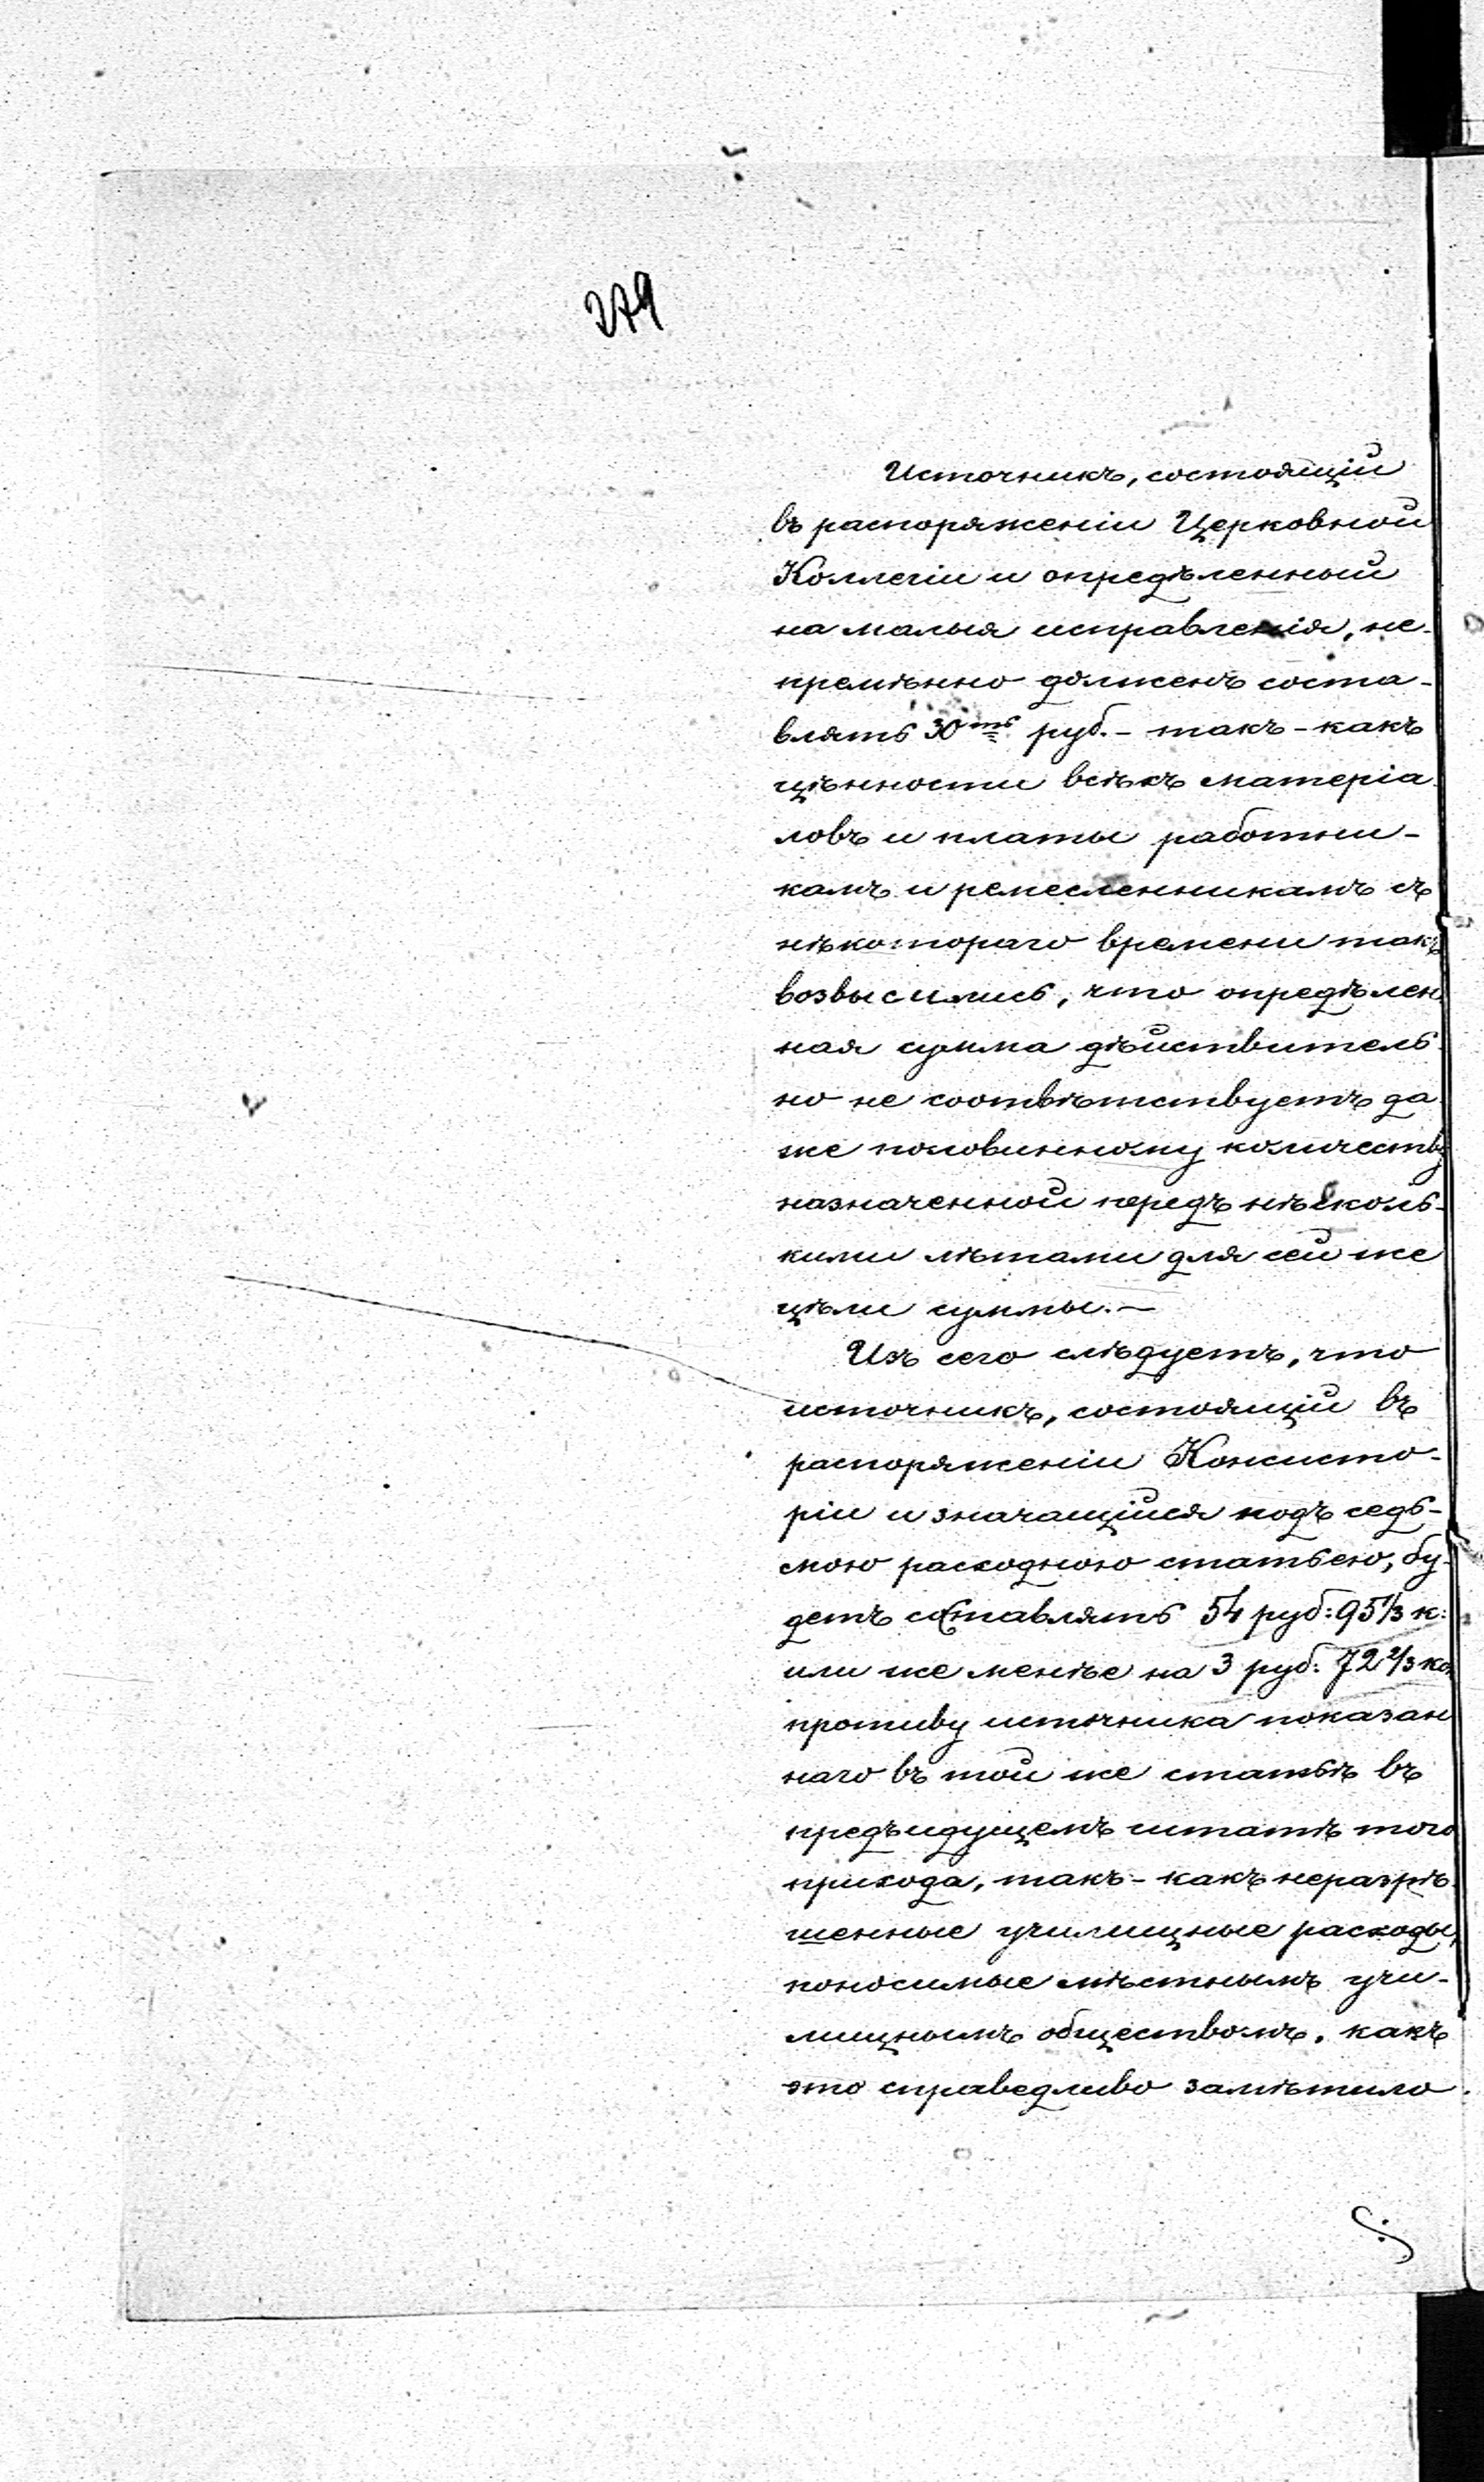 279
Источникъ, состоящій
въ распоряженіи Церковной
Коллегіи и опредѣленный
на малыя исправленія, не-
премѣнно долженъ соста-
влять 30ть руб. - такъ-какъ
цѣнности всѣхъ матеріа
ловъ и платы работни-
камъ и ремесленникамъ съ
нѣкотораго времени такъ
возвысились, что опредѣлен
ная сумма дѣйствитель
но не соотвѣтствуетъ да
же половинному количеству
назначенной передъ нѣсколь-
кими лѣтами для сей же
цѣли суммы. —
Изъ сего слѣдуетъ, что
источникъ, состоящій въ
распоряженіи Консисто-
ріи и значащійся подъ седь-
мою расходною статьею, бу-
детъ составлять 54 руб: 95 1/3 к:
или же менѣе на 3 руб: 72 2/3 ко
противу источника показан
наго въ той же статьѣ въ
предъидущемъ штатѣ того
прихода, такъ-какъ неразрѣ
шенные училищные расходы,
поносимые мѣстнымъ учи-
лищнымъ обществомъ, какъ
это справедливо замѣтило